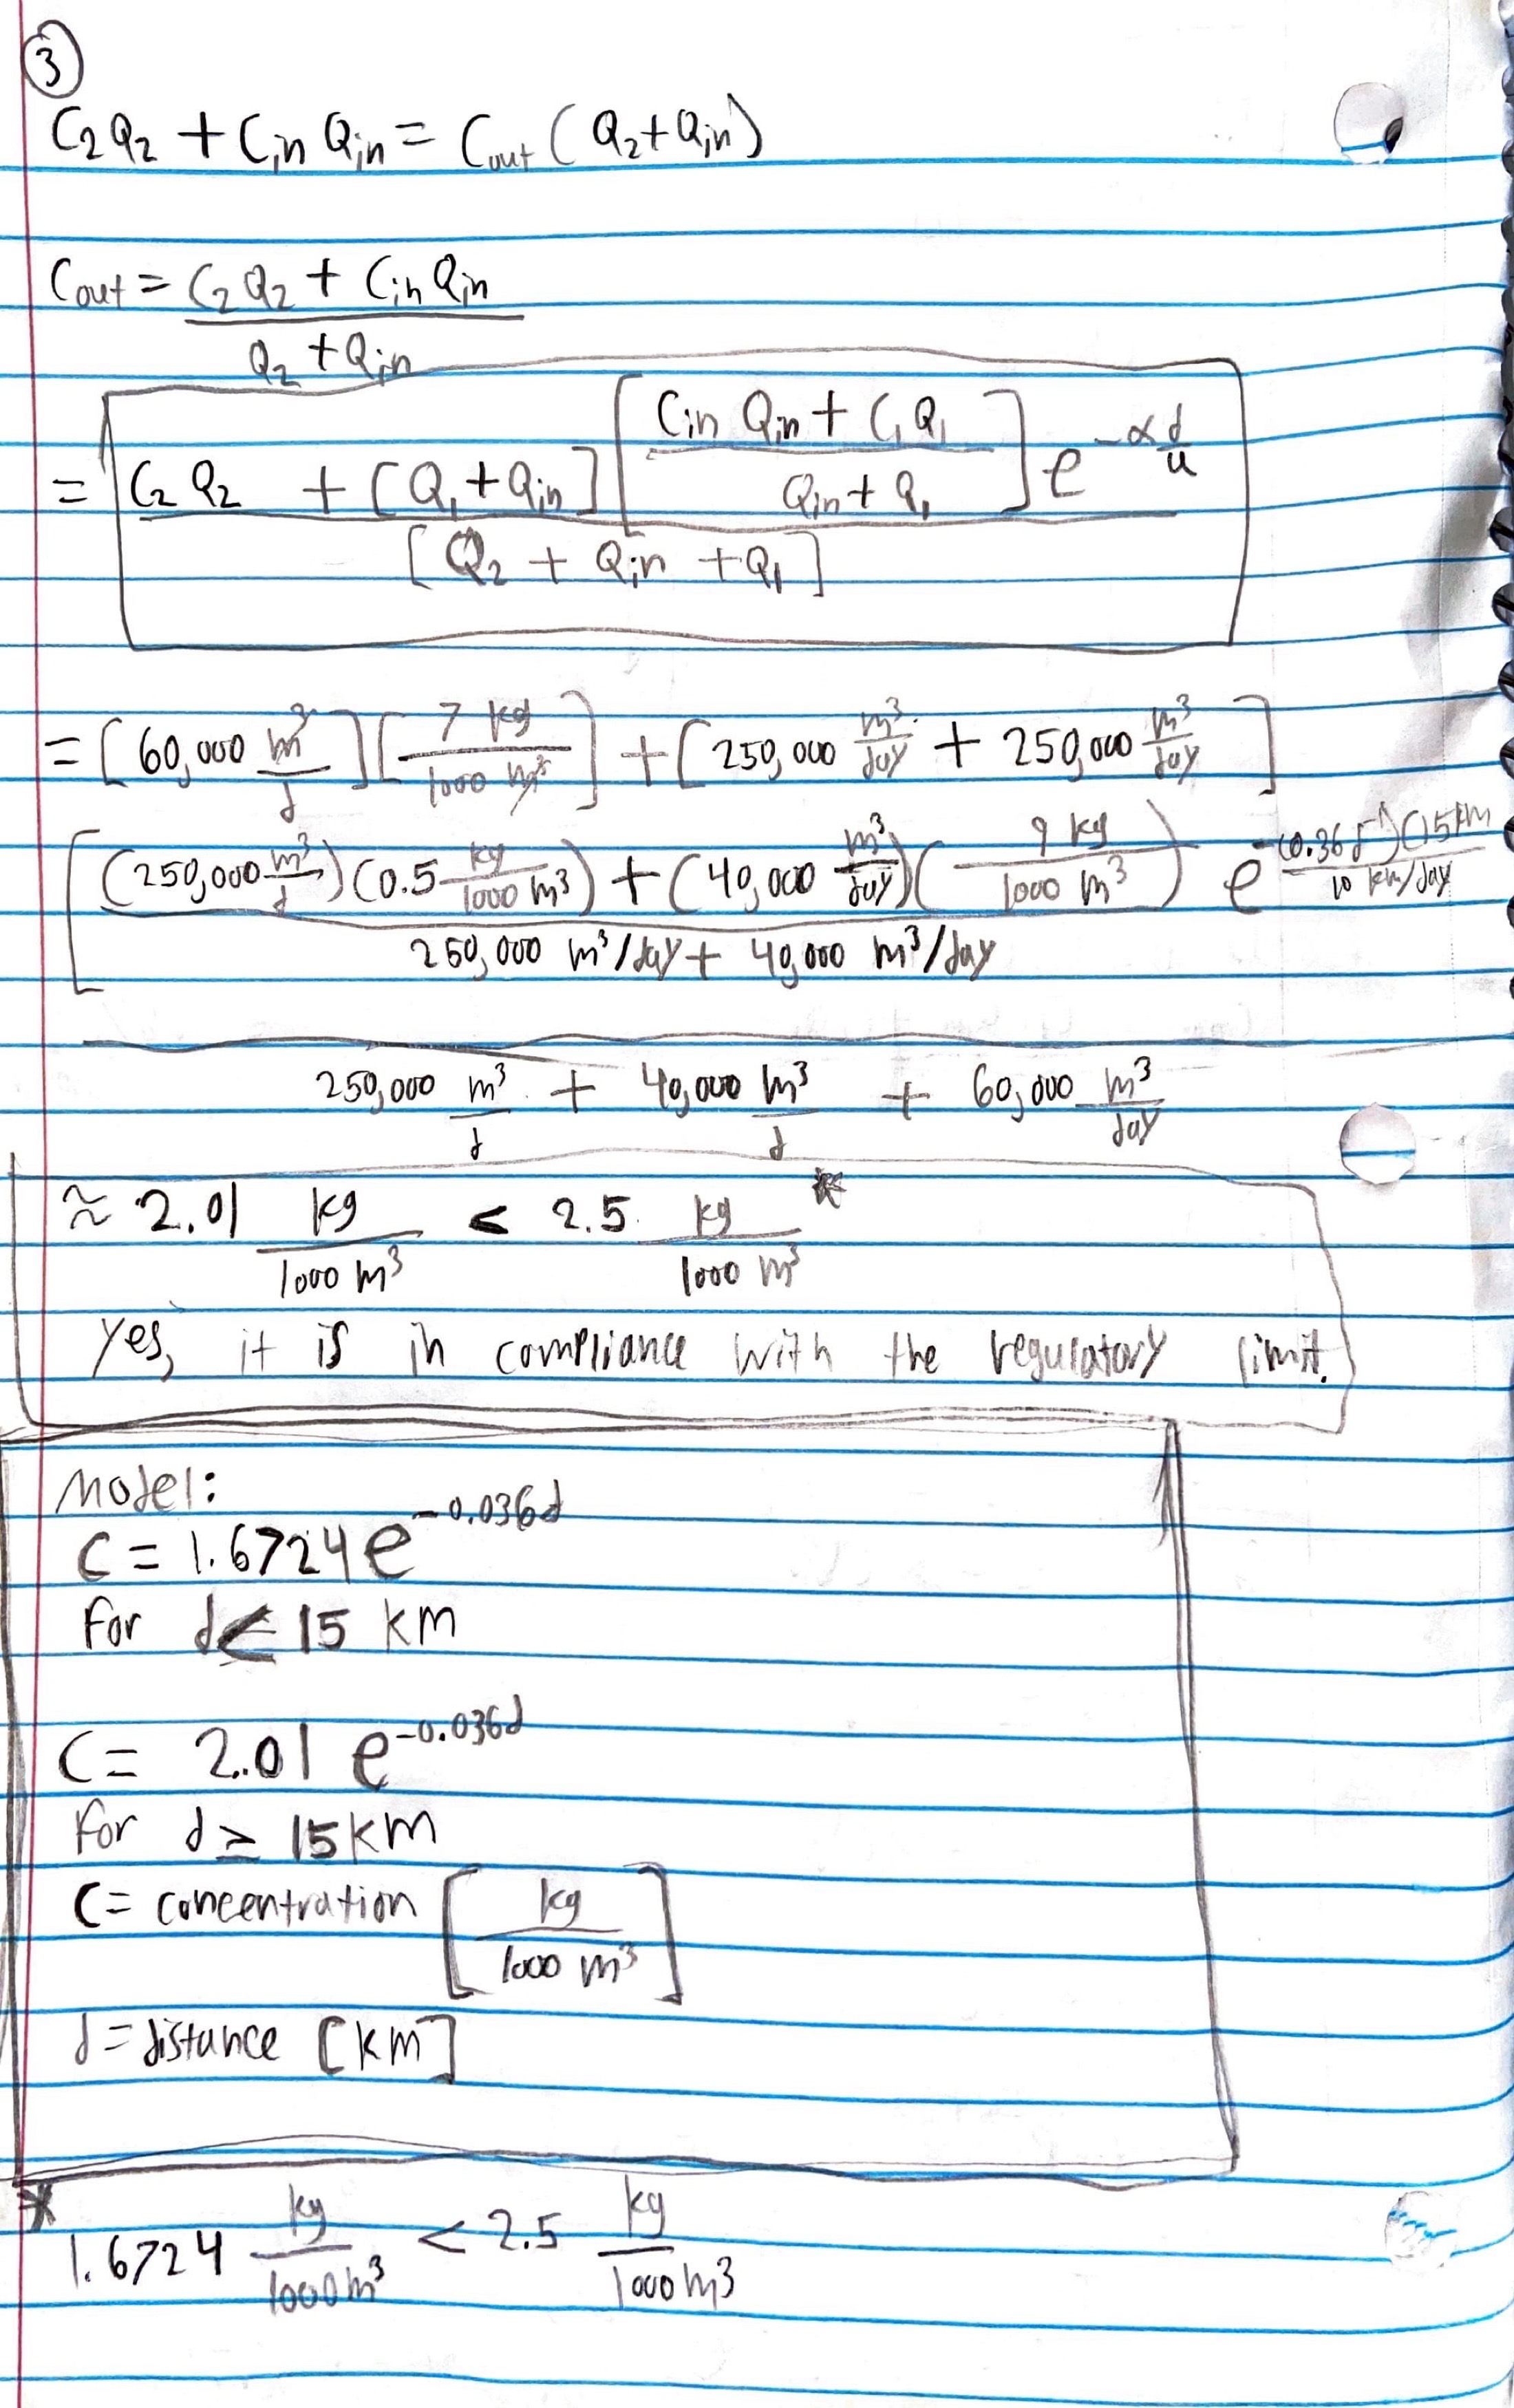 3
C₂Q₂ + Cin Qin = Cout (Q₂+Qin)
Cout = C₂Q₂ + Cin Qin
Q₂ + Qin
= C₂Q₂ + [Q₁+Qin] [ Cin Qin + C₁Q₁ / Qin + Q₁ ] e^(-α d/u)
[Q₂ + Qin + Q₁]
= [60,000 m³/d] [7 kg / 1000 m³] + [250,000 m³/day + 250,000 m³/day]
[ (250,000 m³/d)(0.5 kg/1000 m³) + (40,000 m³/day)(9 kg / 1000 m³) e^(-(0.36 d⁻¹)(15 km) / 10 km/day)
250,000 m³/day + 40,000 m³/day
250,000 m³/d + 40,000 m³/d + 60,000 m³/day
≈ 2.01 kg/1000 m³ < 2.5 kg/1000 m³ *
Yes, it is in compliance with the regulatory limit.
Model:
C = 1.6724 e^(-0.036d)
For d < 15 km
C = 2.01 e^(-0.036d)
For d ≥ 15 km
C = concentration [kg / 1000 m³]
d = distance [km]
* 1.6724 kg/1000 m³ < 2.5 kg/1000 m³